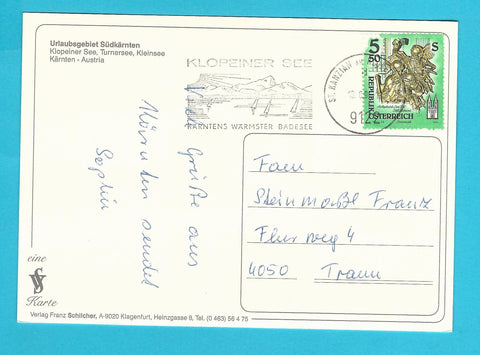 Urlaubsgebiet Südkärnten
Klopeiner See, Turnersee, Kleinsee
Kärnten - Austria
KLOPEINER SEE
KÄRNTENS WÄRMSTER BADESEE
ST. KANZIAN
9122
5
50
S
REPUBLIK
ÖSTERREICH
Viele Grüße aus
Kärnten sendet
Sophie
Fam
Steinmaßl Franz
Flurweg 4
4050 Traun
eine
SV
Karte
Verlag Franz Schilcher, A-9020 Klagenfurt, Heinzgasse 8, Tel. (0 463) 56 4 75